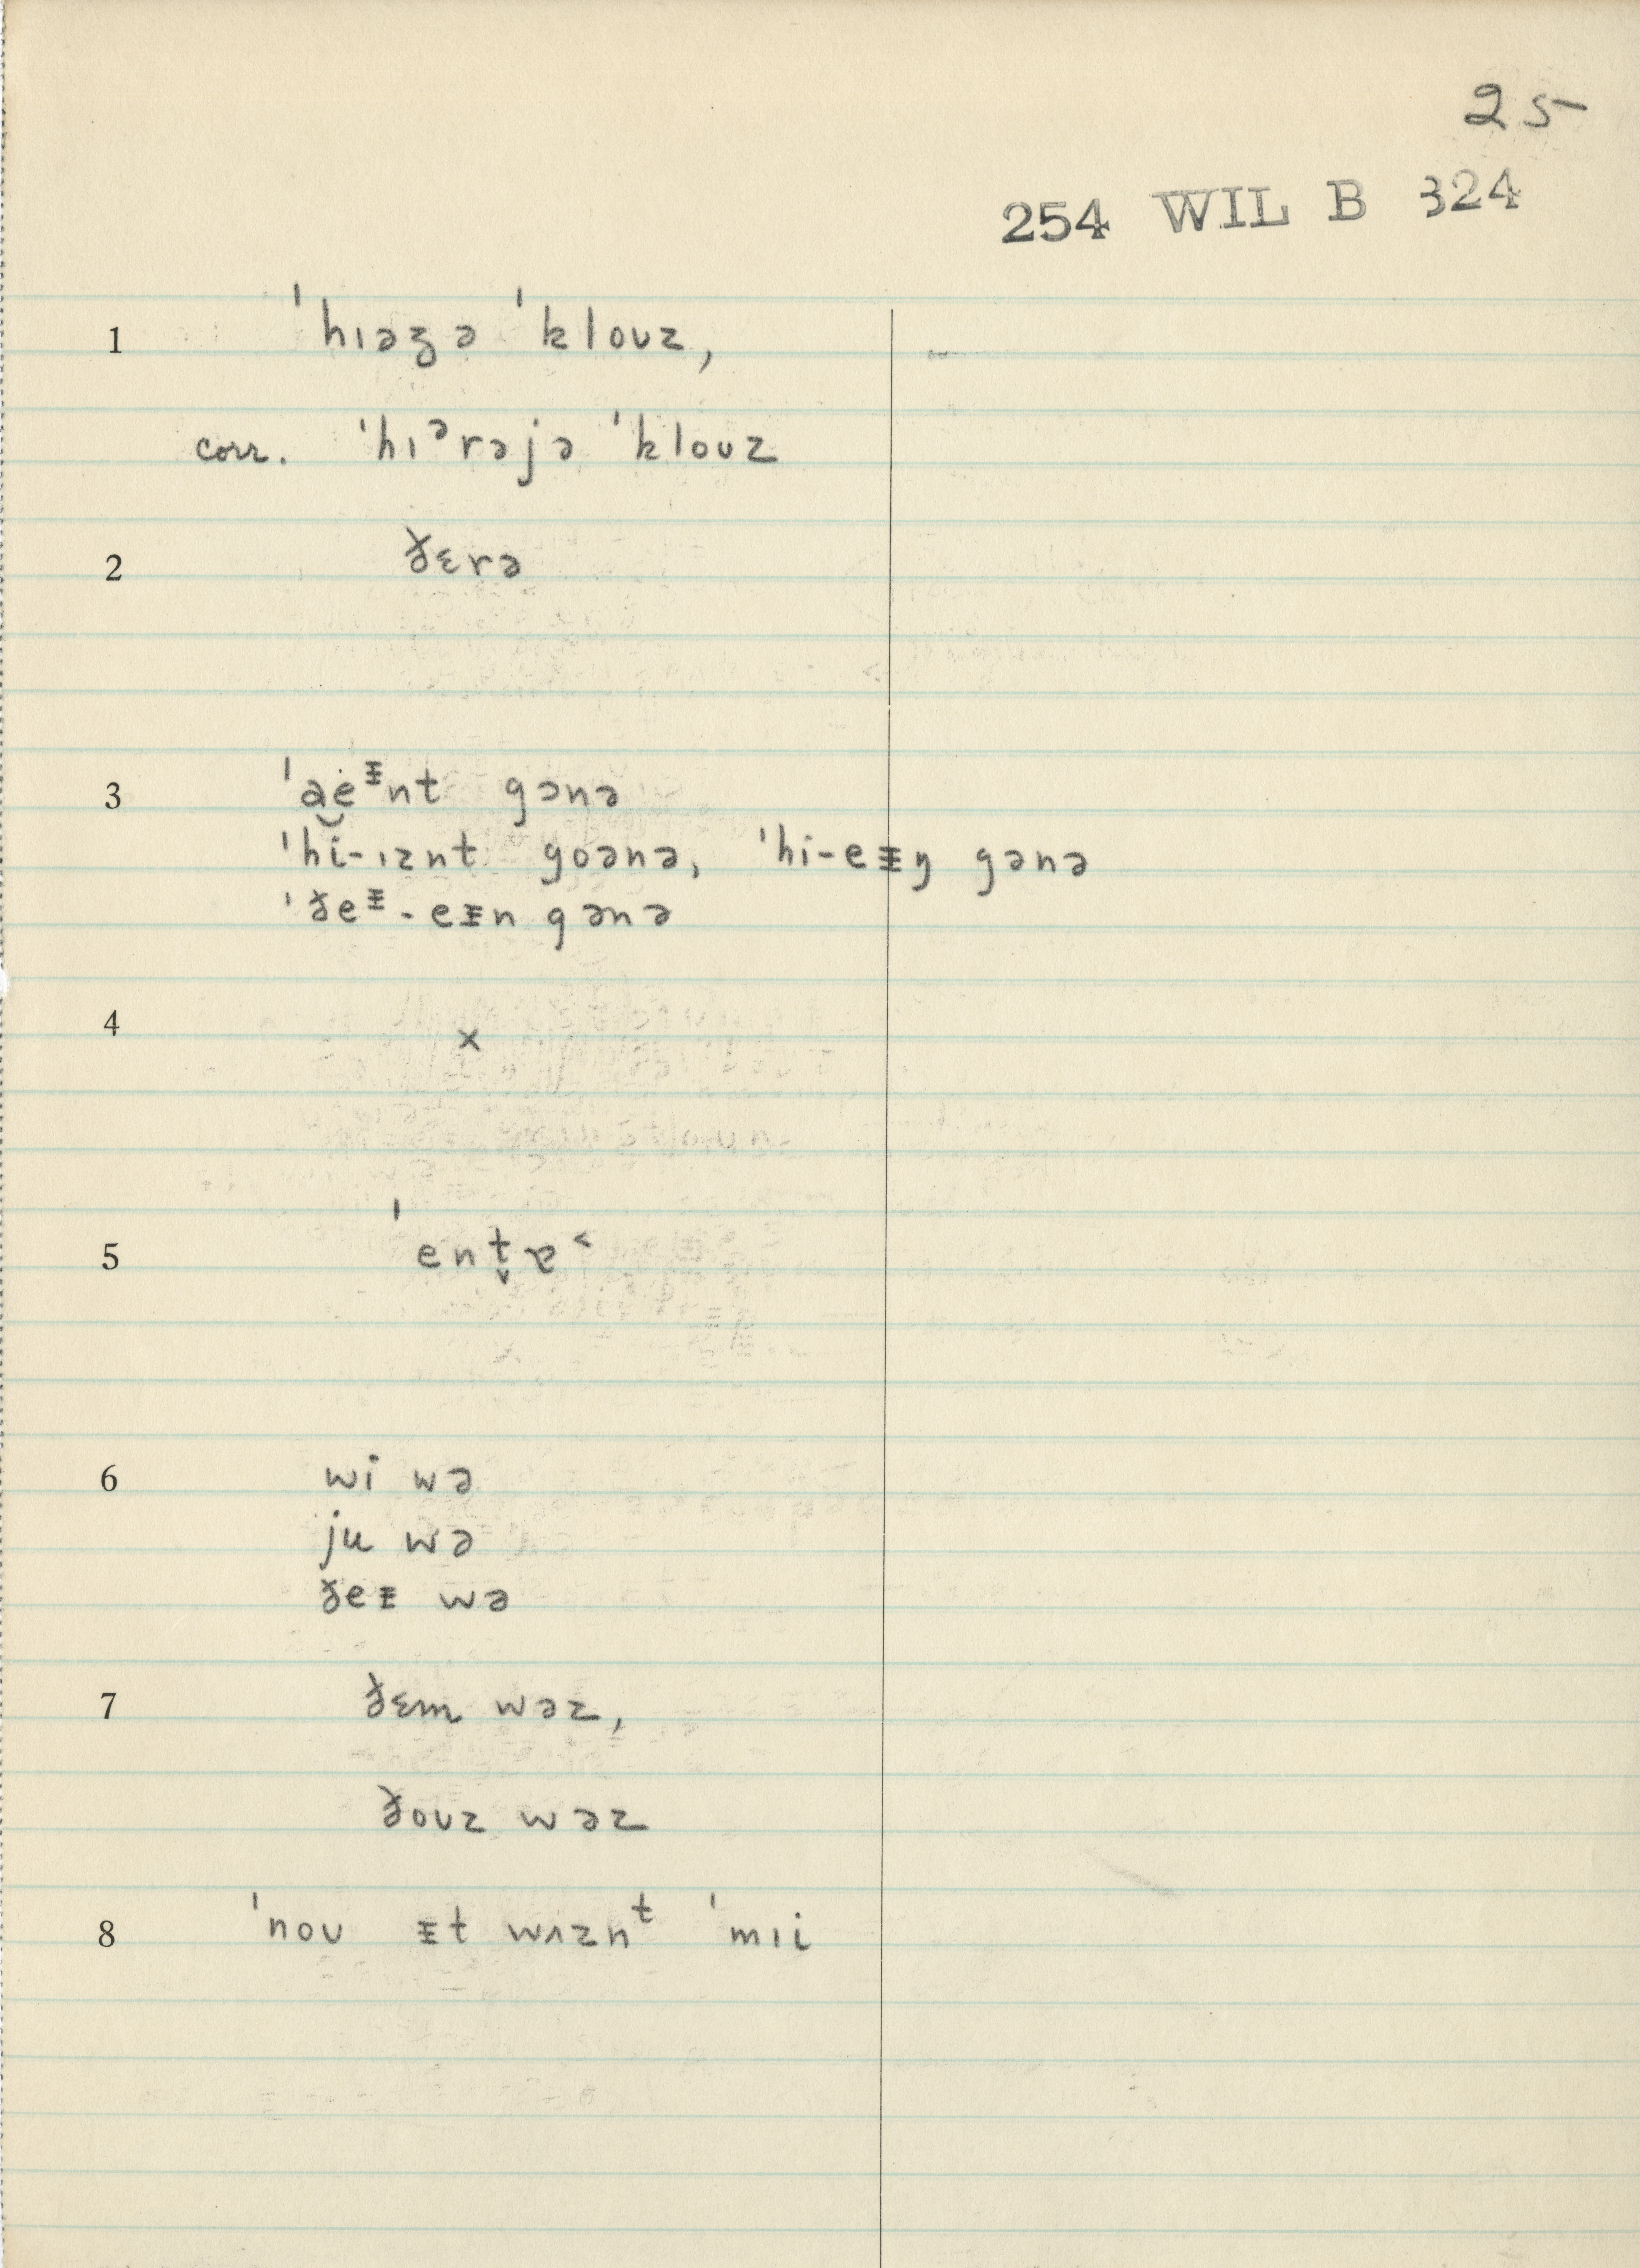 25
254 WIL B 324
1 ˈhɪəʒə ˈklouz,
corr. ˈhɪᵊrəjə ˈklouz
2 ðɛrə
3 ˈae̯ᵻnt gənə
ˈhi-ɪznt goənə, ˈhi-eᵻŋ gənə
ˈðeᵻ-eᵻn gənə
4 x
5 ˈent̬ɐ˂
6 wi wə
ju wə
ðeᵻ wə
7 ðɛm wəz,
ðouz wəz
8 ˈnoʊ ᵻt wʌznᵗ ˈmɪi